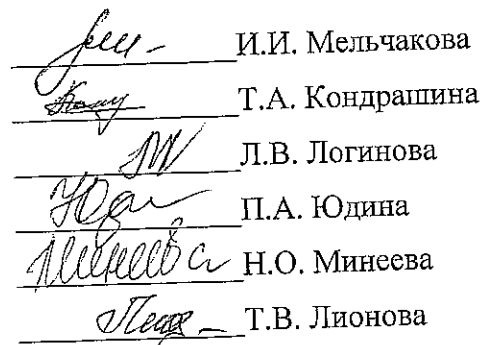 И.И. Мельчакова
Т.А. Кондрашина
Л.В. Логинова
П.А. Юдина
Н.О. Минеева
Т.В. Лионова